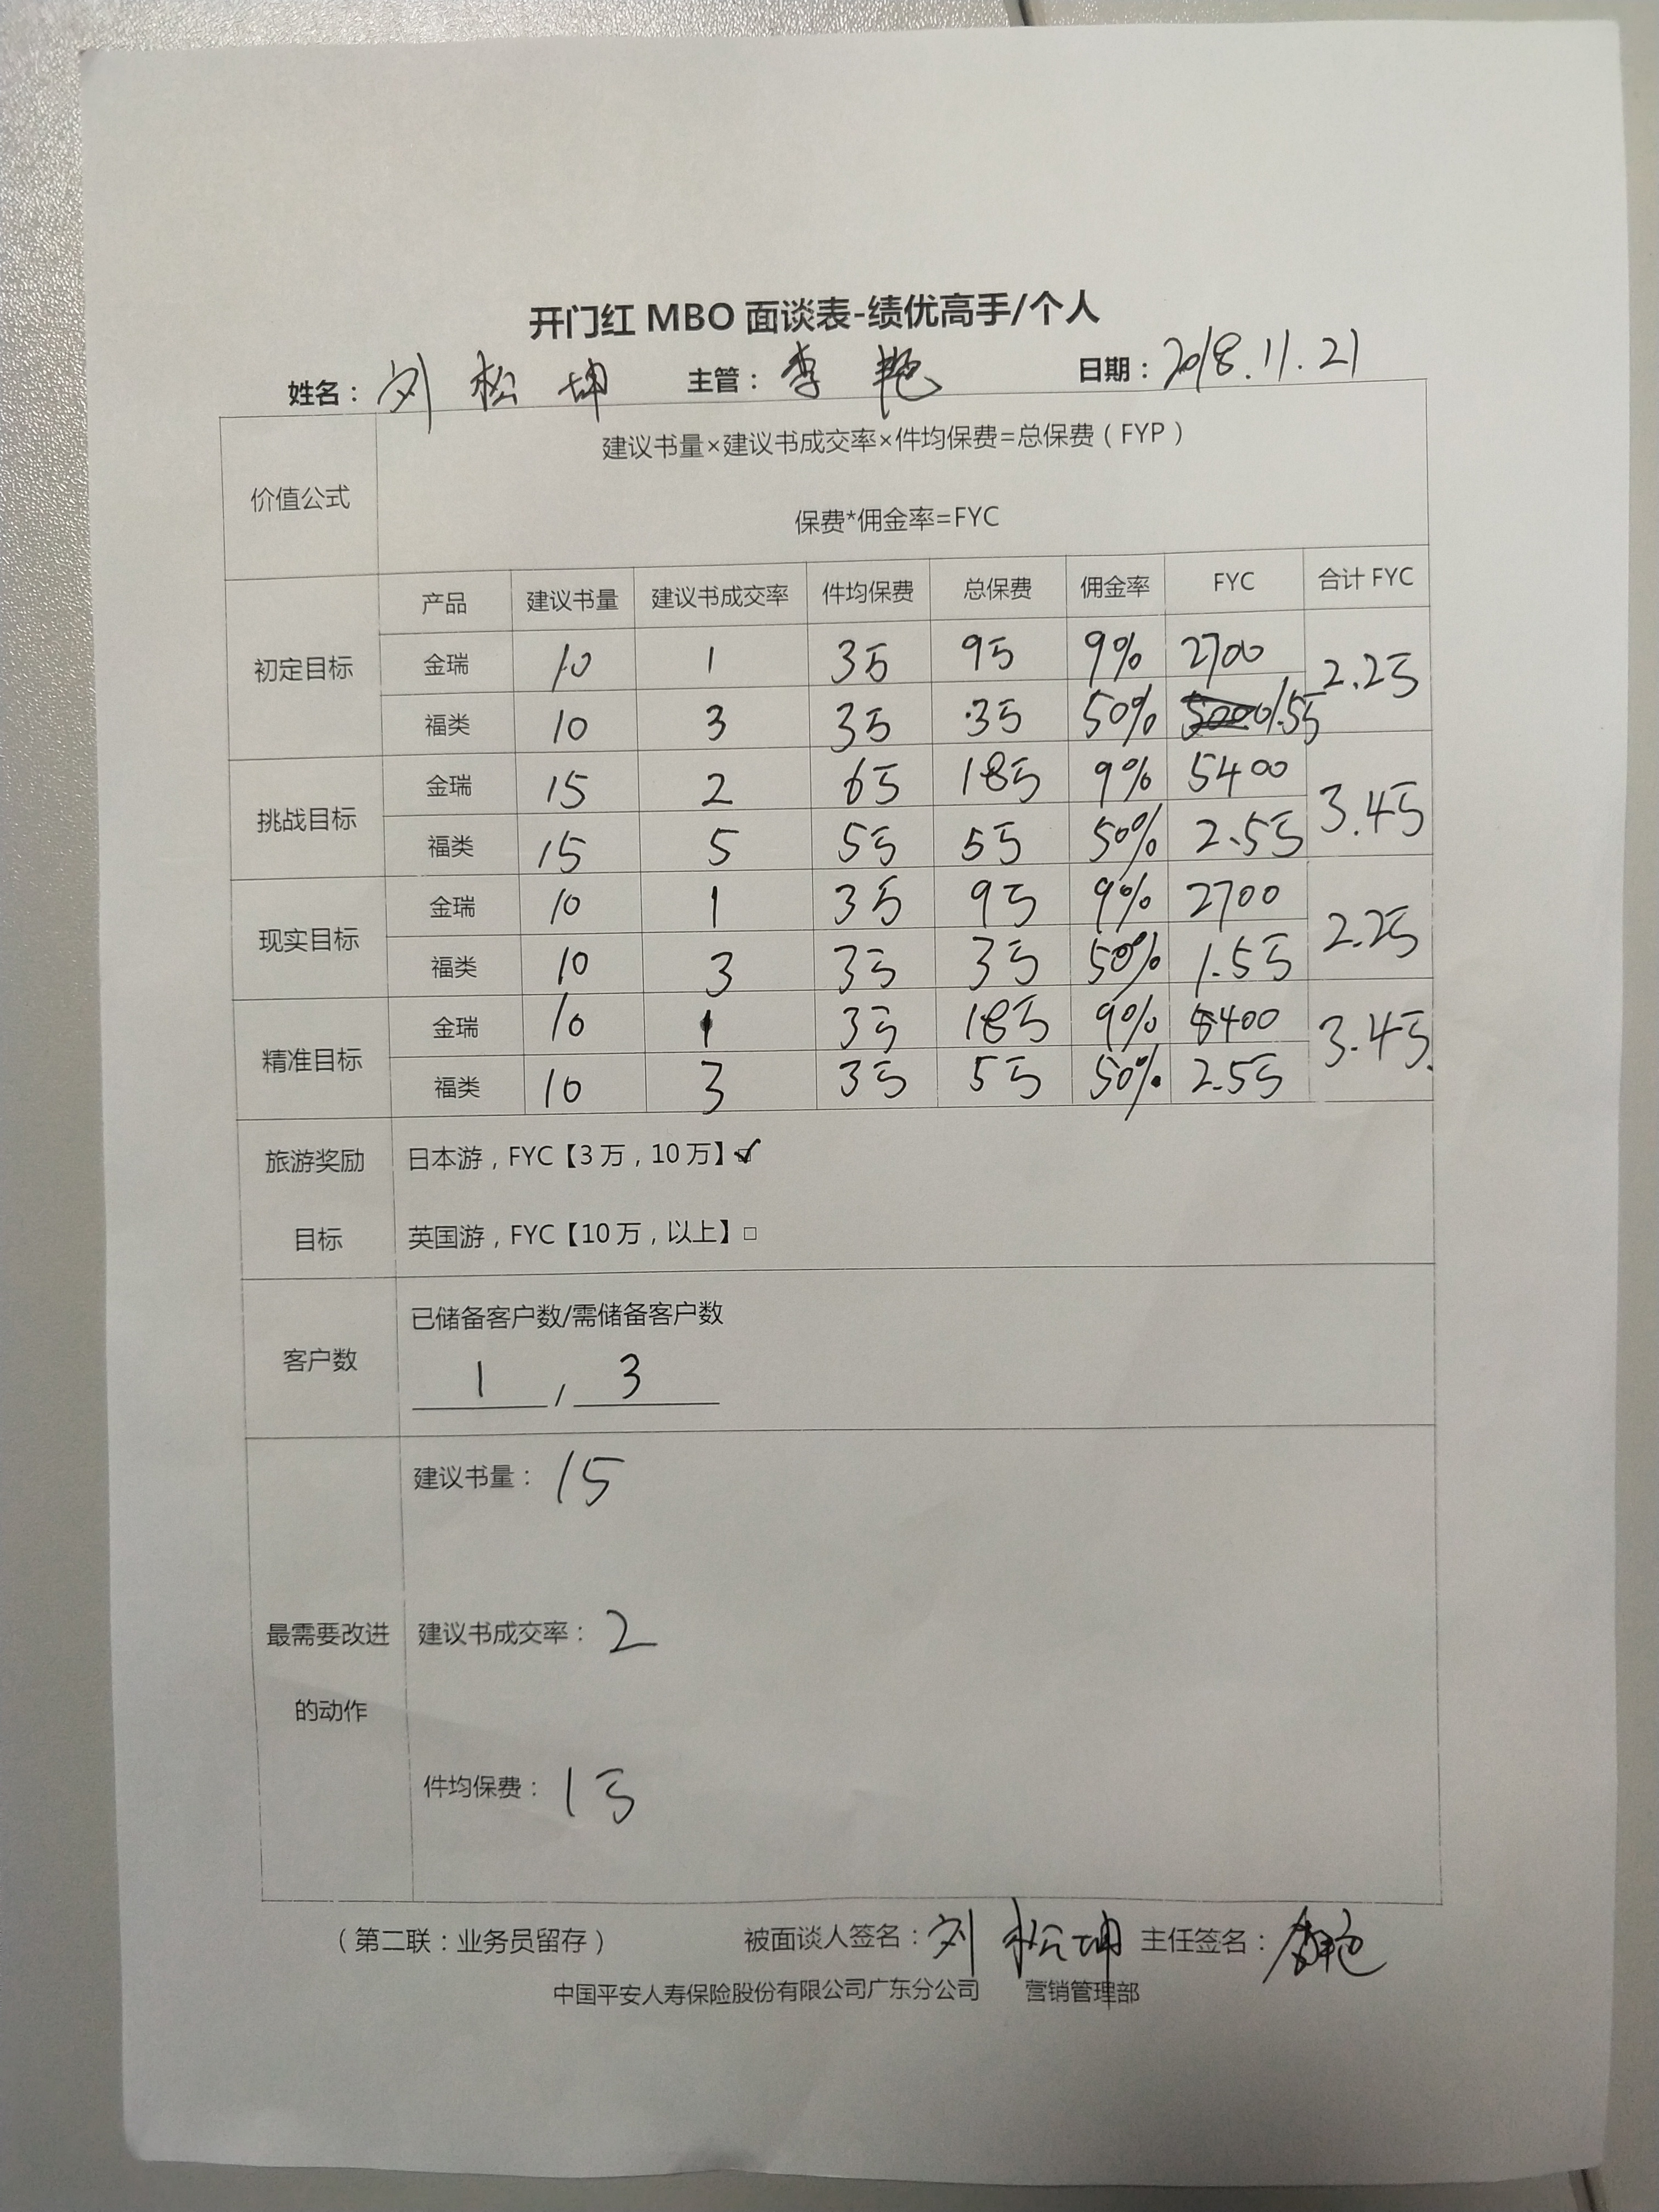 开门红 MBO 面谈表-绩优高手/个人
姓名：刘松坤 主管：李艳 日期：2018.11.21
价值公式
建议书量×建议书成交率×件均保费=总保费（FYP）
保费*佣金率=FYC
产品 建议书量 建议书成交率 件均保费 总保费 佣金率 FYC 合计 FYC
初定目标
金瑞 10 1 3万 9万 9% 2700 2.2万
福类 10 3 3万 3万 50% 1.5万
挑战目标
金瑞 15 2 6万 18万 9% 5400 3.4万
福类 15 5 5万 5万 50% 2.5万
现实目标
金瑞 10 1 3万 9万 9% 2700 2.2万
福类 10 3 3万 3万 50% 1.5万
精准目标
金瑞 10 1 3万 18万 9% 5400 3.4万
福类 10 3 3万 5万 50% 2.5万
旅游奖励
目标
日本游，FYC【3 万，10 万】☑
英国游，FYC【10 万，以上】□
客户数
已储备客户数/需储备客户数
1 / 3
最需要改进
的动作
建议书量：15
建议书成交率：2
件均保费：1万
（第二联：业务员留存） 被面谈人签名：刘松坤 主任签名：李艳
中国平安人寿保险股份有限公司广东分公司 营销管理部